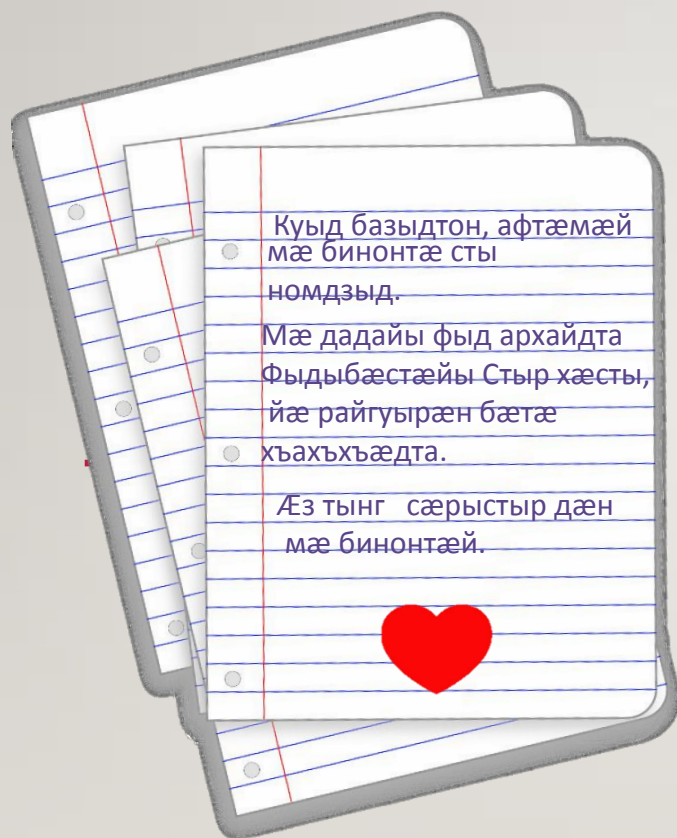 Куыд базыдтон, афтæмæй
мæ бинонтæ сты
номдзыд.
Мæ дадайы фыд архайдта
Фыдыбæстæйы Стыр хæсты,
йæ райгуырæн бæтæ
хъахъхъæдта.
Æз тынг сæрыстыр дæн
мæ бинонтæй.